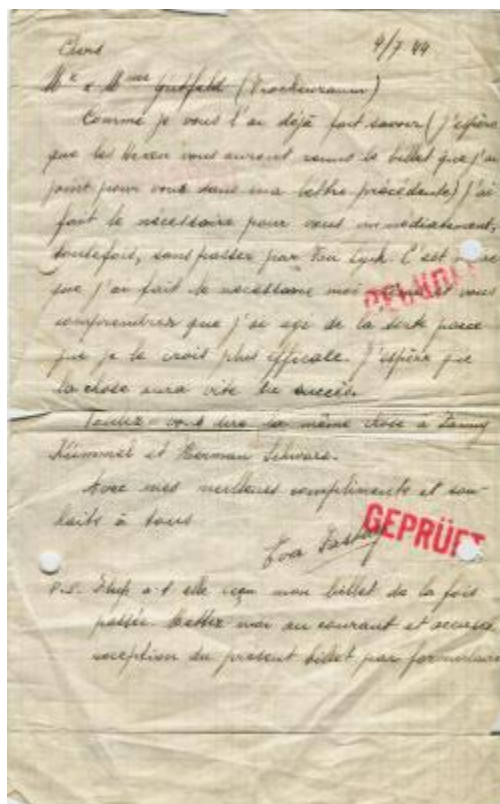 Chers 4/7 44
Mr & Mme Gutfeld (Trockenraum)
Comme je vous l'ai déjà fait savoir (j'espère
que les Heren vous auront remis le billet que j'ai
joint pour vous dans ma lettre précédente) j'ai
fait le necessaire pour vous immediatement,
toutefois, sans passer par Van Lyck. C'est
que j'ai fait le necessaire moi et vous
comprendrez que j'ai agi de la sorte parce
que je le crois plus efficace. J'espère que
la chose aura vite du succès.
Voulez-vous dire la même chose à Fanny
Kümmel et Herman Schwarz.
Avec mes meilleurs compliments et sou-
haits à tous
GEPRÜFT
Eva
P.S. a-t elle reçu mon billet de la fois
passée. Mettez moi au courant et accusez
reception du present billet par formulaire